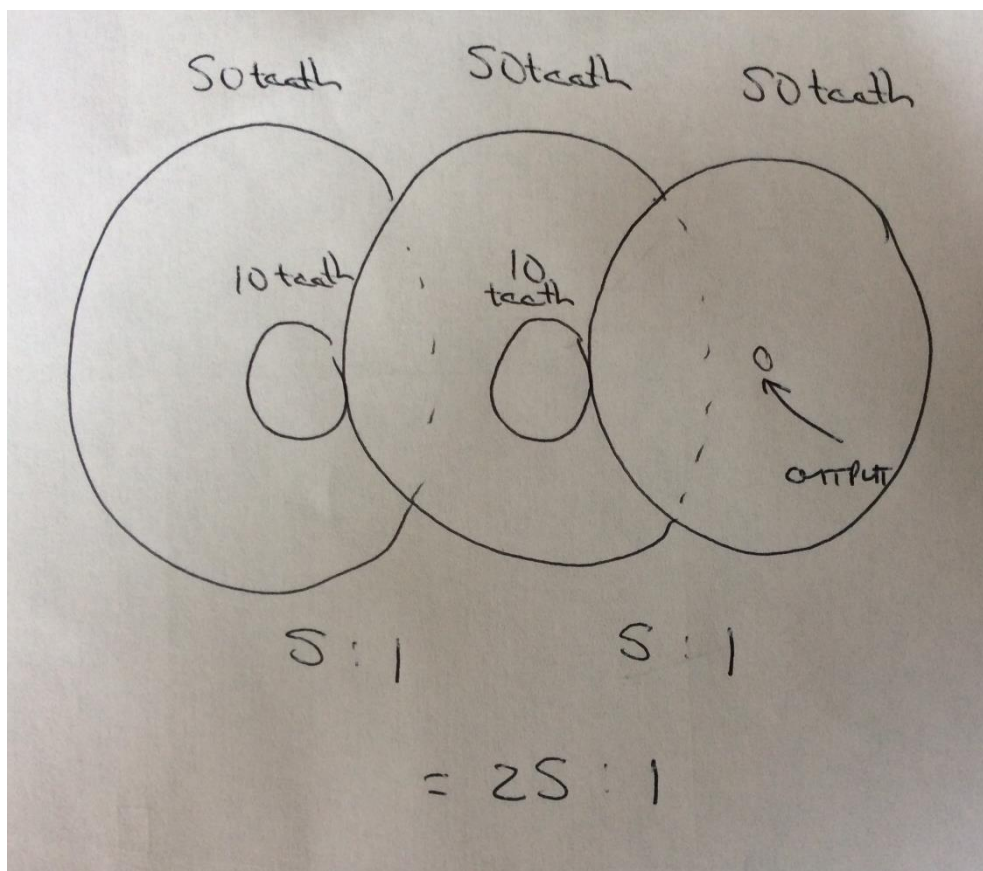 50 teeth
50 teeth
50 teeth
10 teeth
10
teeth
OUTPUT
5 : 1
5 : 1
= 25 : 1